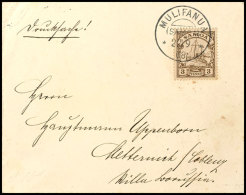 Drucksache!
MULIFANUA
SAMOA
3 3
Herrn
Hauptmann Uppenborn
Metternich / Coblenz
Villa borussia.